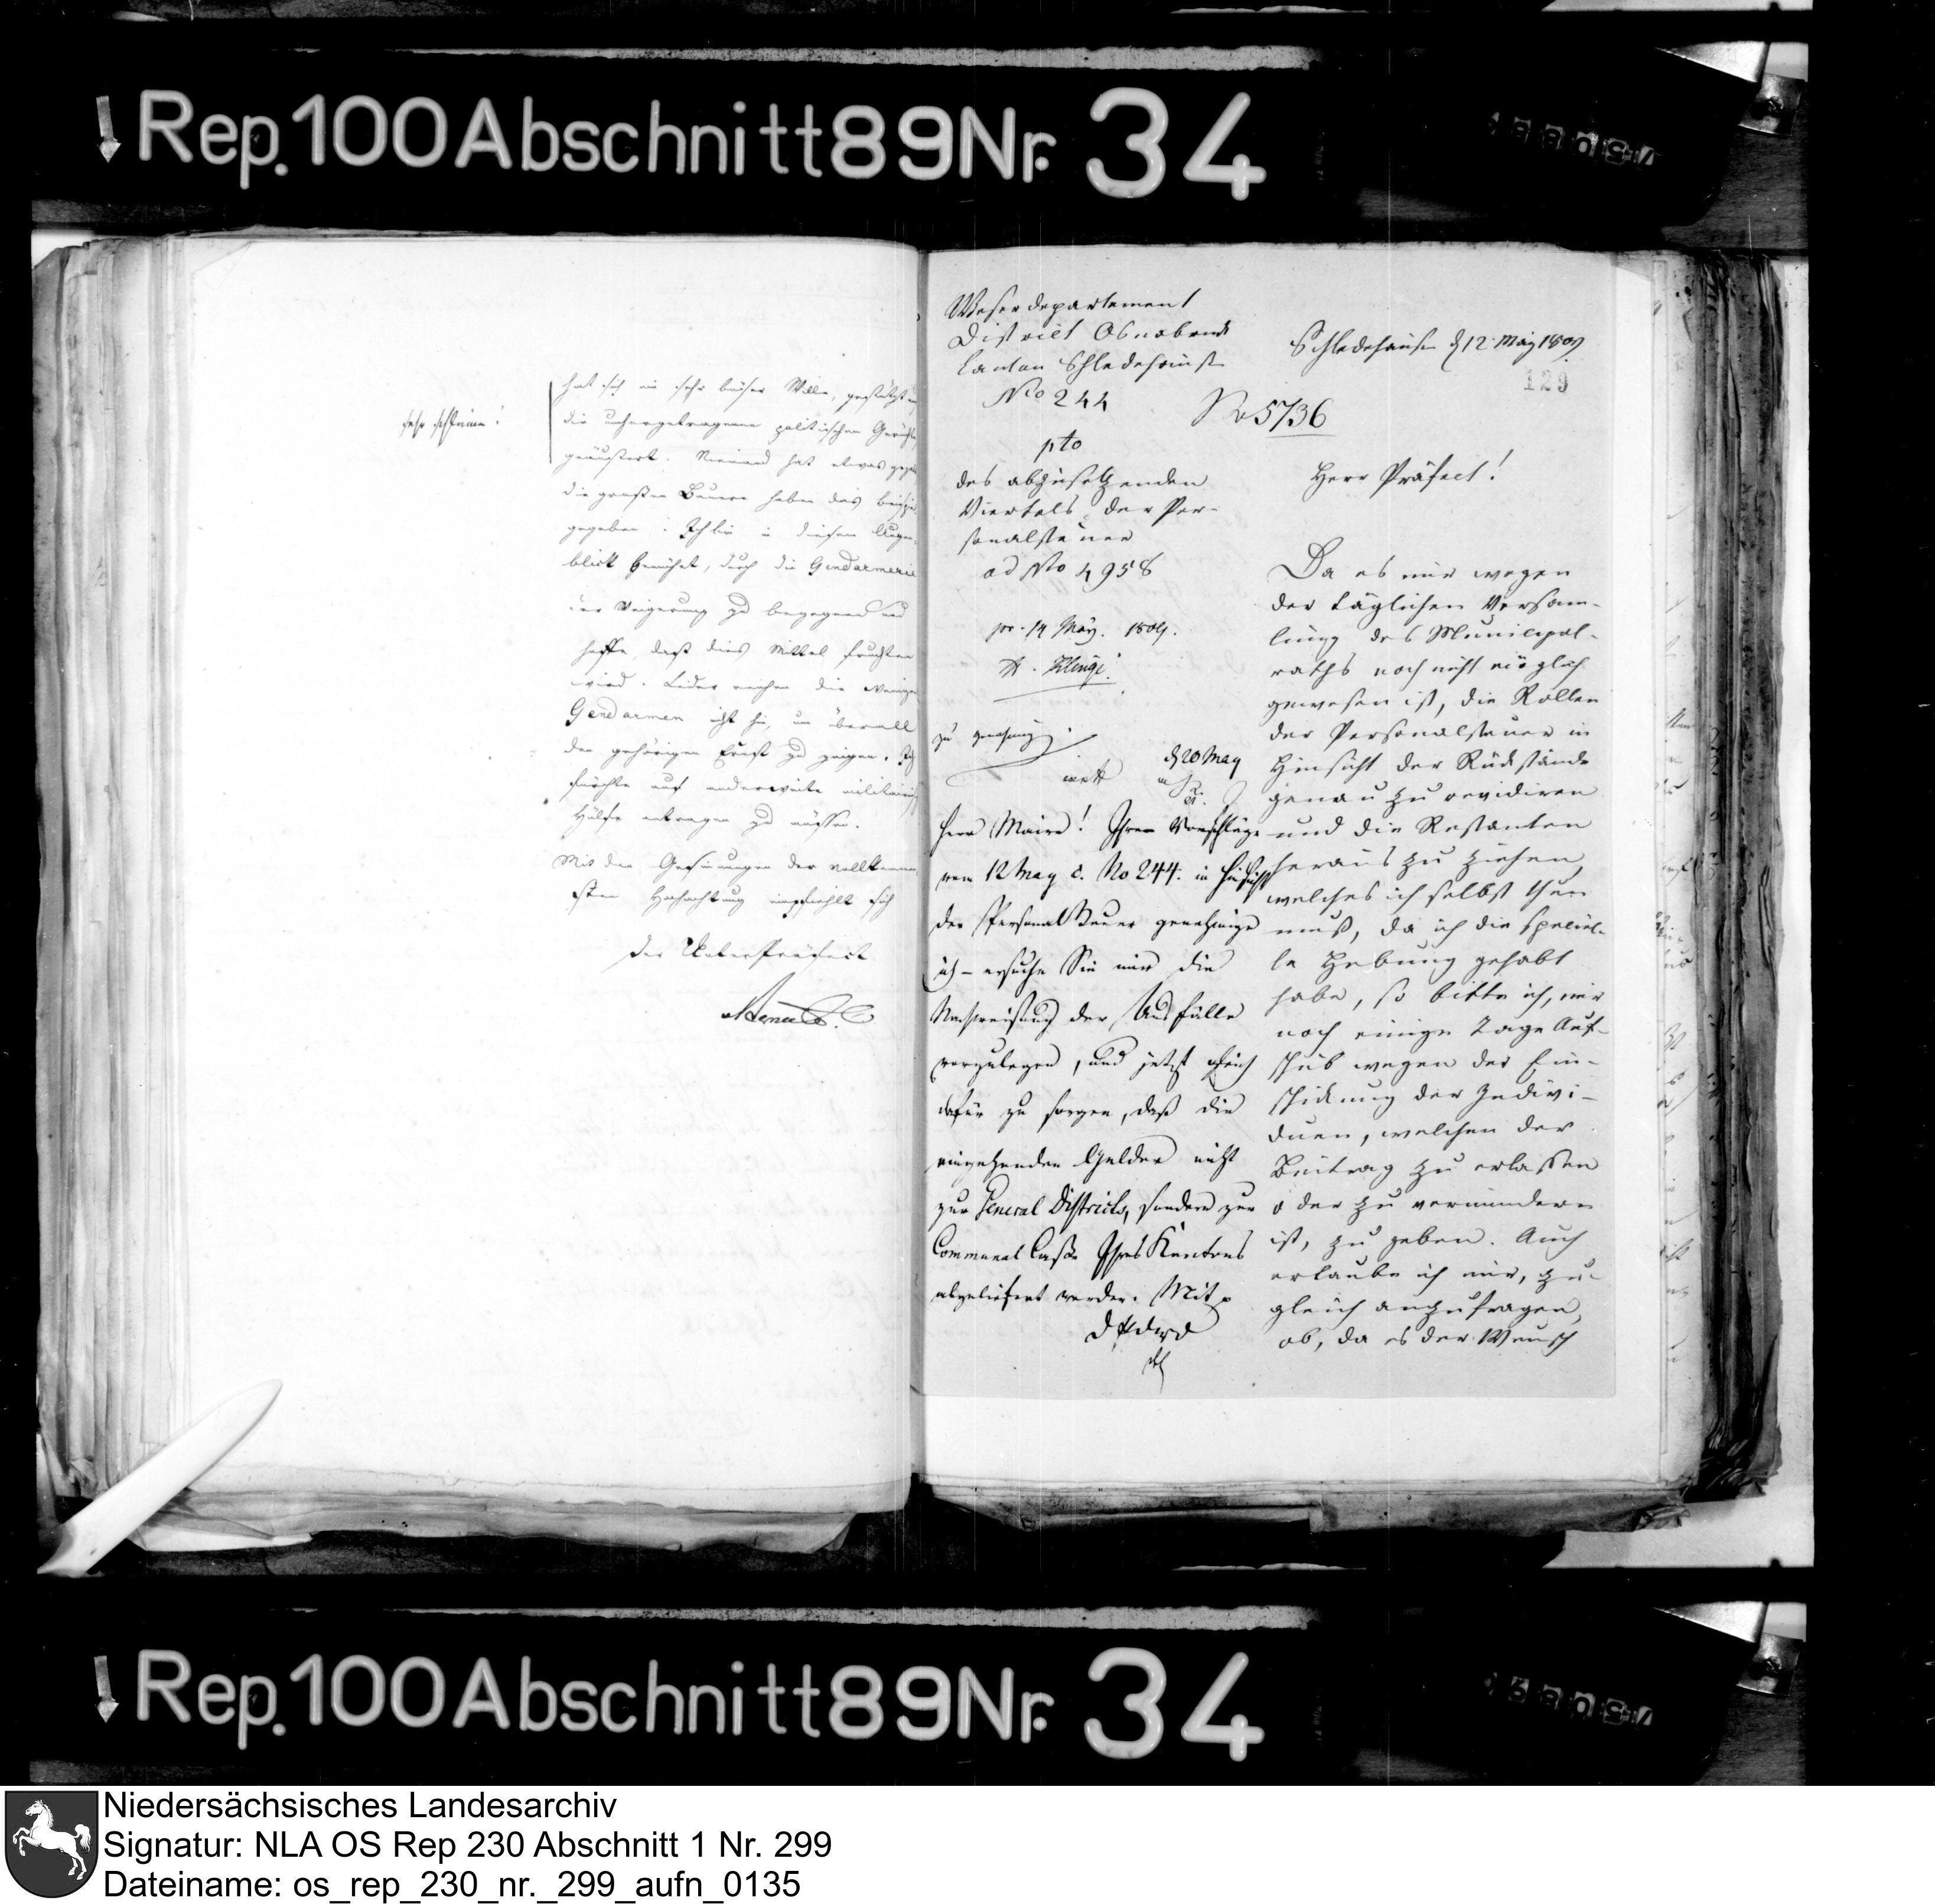 Rep. 100 Abschnitt 89 Nr. 34
hat sich ein sehr böser Wille, gestützt auf
die umhergetragenen politischen Gerüchte,
geäußert. Niemand hat etwas
die großen Bauern haben das
gegeben. Ich bin in diesem Augen-
blick bemühet, durch die Gendarmerie
der Weigerung zu begegnen und
hoffe, daß dies Mittel fruchten
wird. Leider reichen die wenigen
Gendarmen nicht hin, um überall
den gehörigen Ernst zu zeigen. Ich
fürchte auf anderweite militairische
Hülfe antragen zu müssen.
Mit den Gesinnungen der vollkommen-
sten Hochachtung empfiehlt sich
der Unterpräfect
Weserdepartement
District Osnabrück
Canton Schledehausen
No 244
pto
des abzusetzenden
Viertels der Per-
sonalsteuer
ad No 4958
pr. 14 May. 1809.
zu
d 20 May
Herr Maire! Ihren Vorschläge
vom 12 May c. No 244. in Hinsicht
der Personal Steuer genehmige
ich - ersuche Sie mir die
Nachweisung der Ausfälle
vorzulegen, und jetzt gleich
dafür zu sorgen, daß die
eingehenden Gelder nicht
zur General Districts, sondern zur
Communal Casse Ihres Kantons
abgeliefert werden. Mit
Schledehausen d 12 May 1809
129
No 5736
Herr Präfect!
Da es mir wegen
der täglichen Versam-
lung des Municipal-
raths noch nicht möglich
gewesen ist, die Rollen
der Personalsteuer in
Hinsicht der Rückstände
genau zu revidiren
und die Restanten
heraus zu ziehen,
welches ich selbst thun
muß, da ich die speciel-
le Hebung gehabt
habe, so bitte ich, mir
noch einige Tage Auf-
schub wegen der Ein-
schickung der Indivi-
duen, welchen der
Beitrag zu erlassen
oder zu vermindern
ist, zu geben. Auch
erlaube ich mir, zu-
gleich anzufragen,
ob, da es der Wunsch
Rep. 100 Abschnitt 89 Nr. 34
Niedersächsisches Landesarchiv
Signatur: NLA OS Rep 230 Abschnitt 1 Nr. 299
Dateiname: os_rep_230_nr._299_aufn_0135